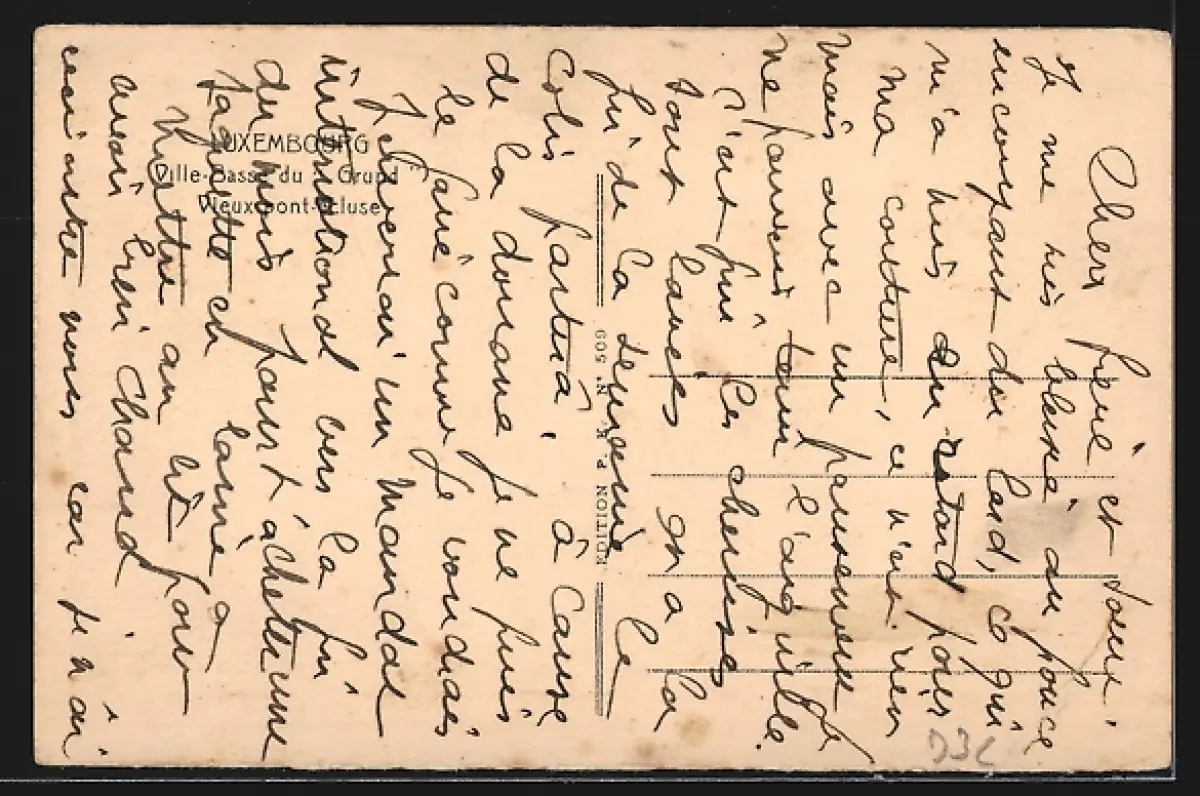 Chers frère et soeur
Je me suis blessé au pouce
en coupant du lard, ce qui
m'a mis en retard pour
ma couture, ce n'est rien
mais avec un pansement je
ne pouvais tenir l'aiguille.
C'est fini les chemises
sont lavées on a la
fin de la semaine le
Colis partira à cause
de la douane je ne puis
le faire comme je voudrais
Je t'enverrai un mandat
international vers la fin
du mois pour t'acheter une
Jaquette en laine a
mettre au lit pour
avoir bien Chaud
car je n'ai
LUXEMBOURG
Ville-Basse du Grund
Vieux pont-écluse
EDITION P. K. N° 509